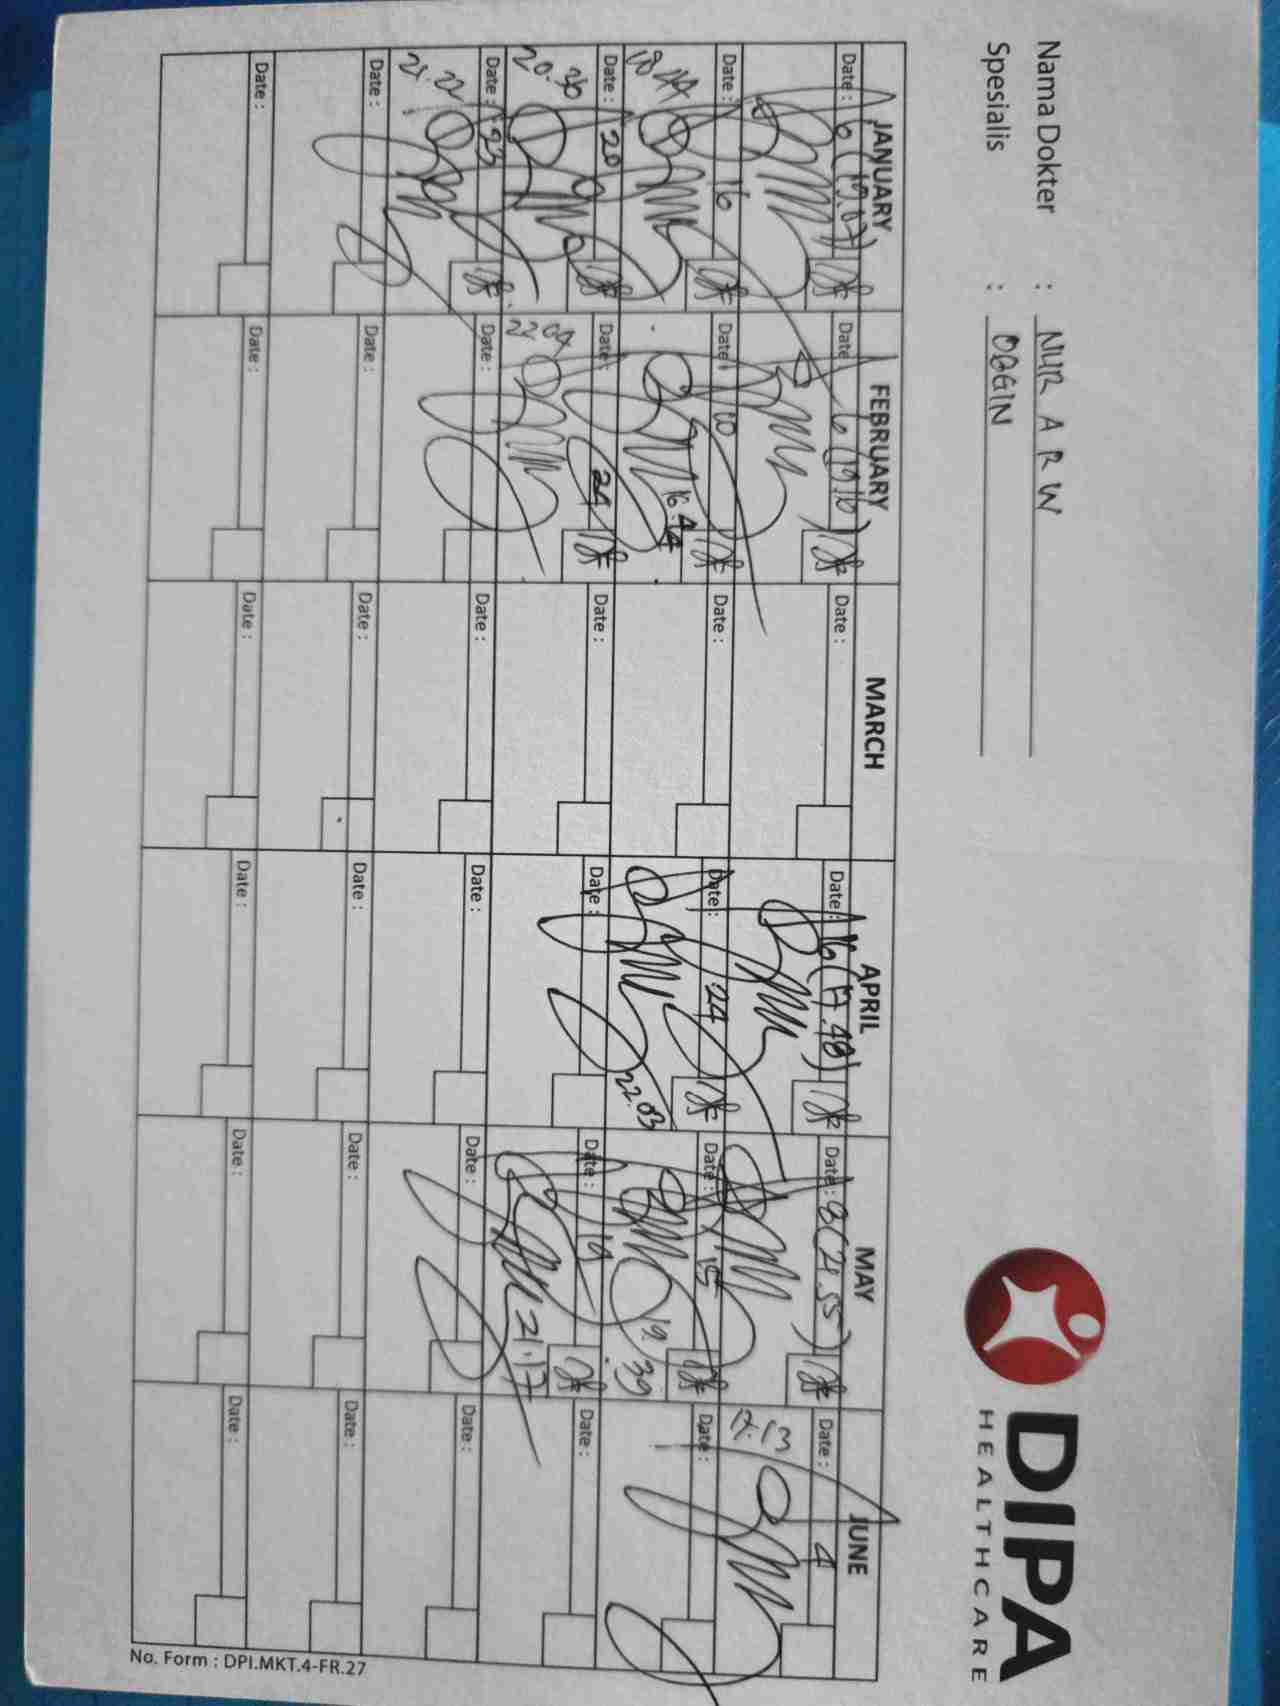 DIPA
HEALTHCARE
Nama Dokter : NUR A R W
Spesialis : OBGIN
JANUARY FEBRUARY MARCH APRIL MAY JUNE
Date : 6 (19.07) Date : 6 (19.16) Date : Date : 16 (17.48) Date : 8 (21.55) Date : 4
17.13
Date : 16 Date : 10 Date : Date : 24 Date : 15 Date :
18.44 16.44 22.03 19.39
Date : 20 Date : 24 Date : Date : Date : 19 Date :
20.30 22.04 21.17
Date : 23 Date : Date : Date : Date : Date :
21.22
Date : Date : Date : Date : Date : Date :
Date : Date : Date : Date : Date : Date :
No. Form : DPI.MKT.4-FR.27